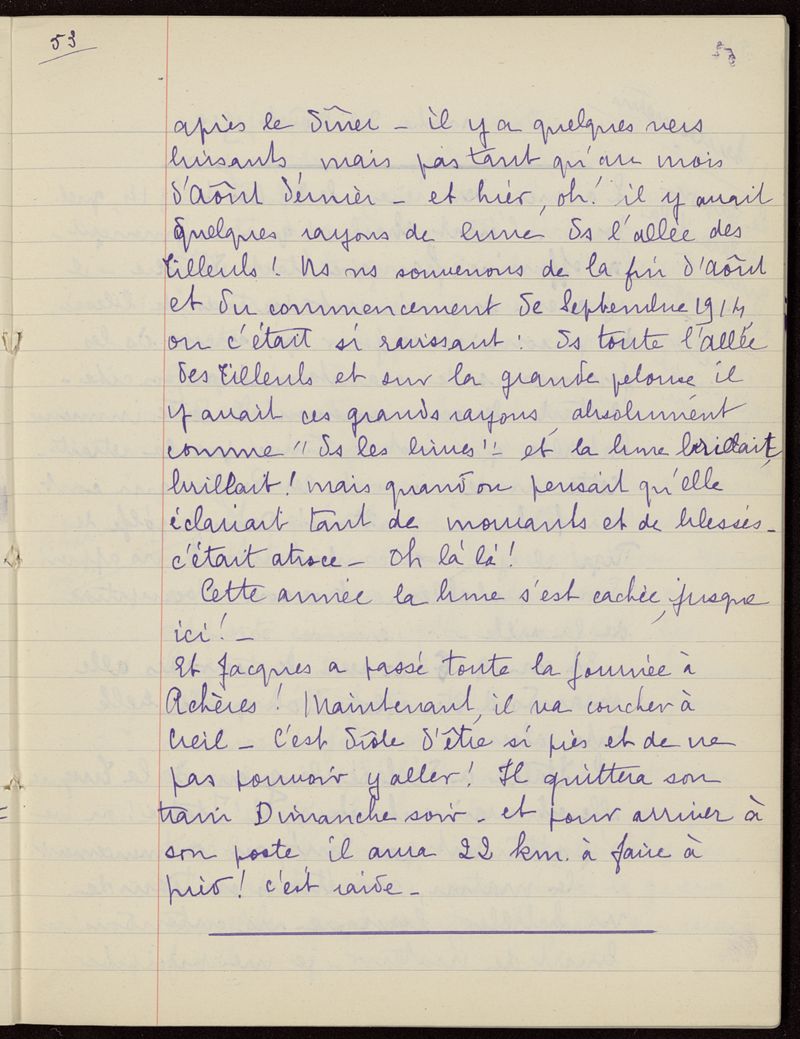 53
après le dîner – il y a quelques vers
luisants mais pas tant qu'au mois
d'Août dernier – et hier, oh! il y avait
quelques rayons de lune ds l'allée des
tilleuls! Ns ns souvenons de la fin d'Août
et du commencement de Septembre 1914,
où c'était si ravissant: ds toute l'allée
des tilleuls et sur la grande pelouse il
y avait ces grands rayons, absolument
comme "ds les livres" – et la lune brillait,
brillait! mais quand on pensait qu'elle
éclairait tant de mourants et de blessés –
c'était atroce – Oh là là!
Cette année la lune s'est cachée, jusque
ici! –
Et Jacques a passé toute la journée à
Achères! Maintenant, il va coucher à
Creil – C'est drôle d'être si près et de ne
pas pouvoir y aller! Il quittera son
train Dimanche soir – et pour arriver à
son poste il aura 22 km. à faire à
pied! c'est raide –